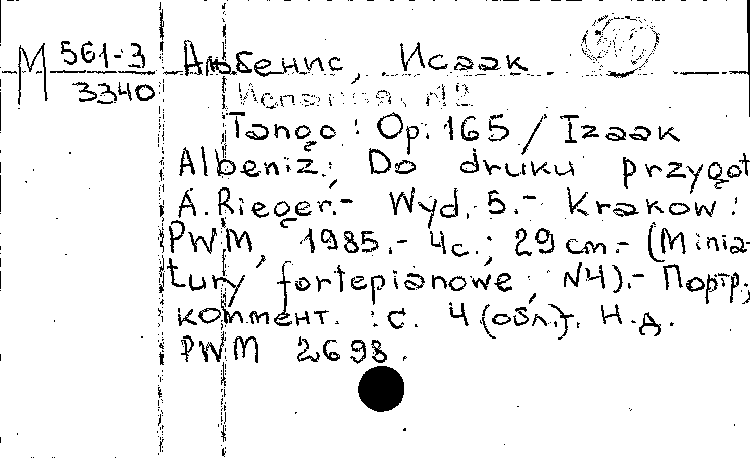 М 561-3 Альбенис, Исаак
3340 Испания, N2
Tango : Op. 165 / Izaak
Albeniz.; Do druku przygot
A. Rieger.- Wyd. 5.- Krakow :
PWM, 1985.- 4с.; 29 cm.- (Minia-
tury fortepianowe; N4).- Портр.;
коммент. : с. 4 (обл.). Н.д.
PWM 2698.